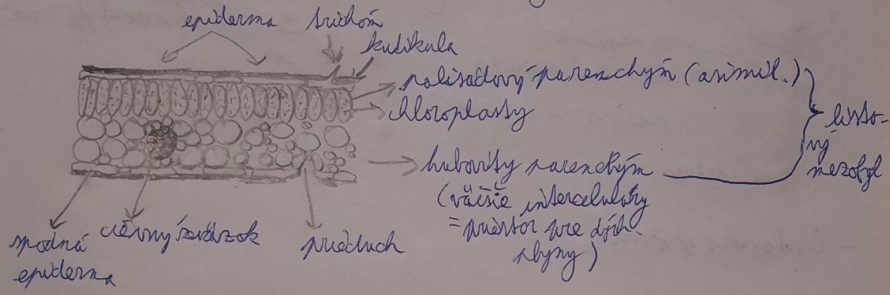 epiderma
trichóm
kutikula
palisádový parenchým (asimil.)
chloroplasty
listo-
vý
mezofyl
hubovitý parenchým
(väčšie interceluláry
= priestor pre dých.
plyny)
spodná
epiderma
cievny zväzok
prieduch